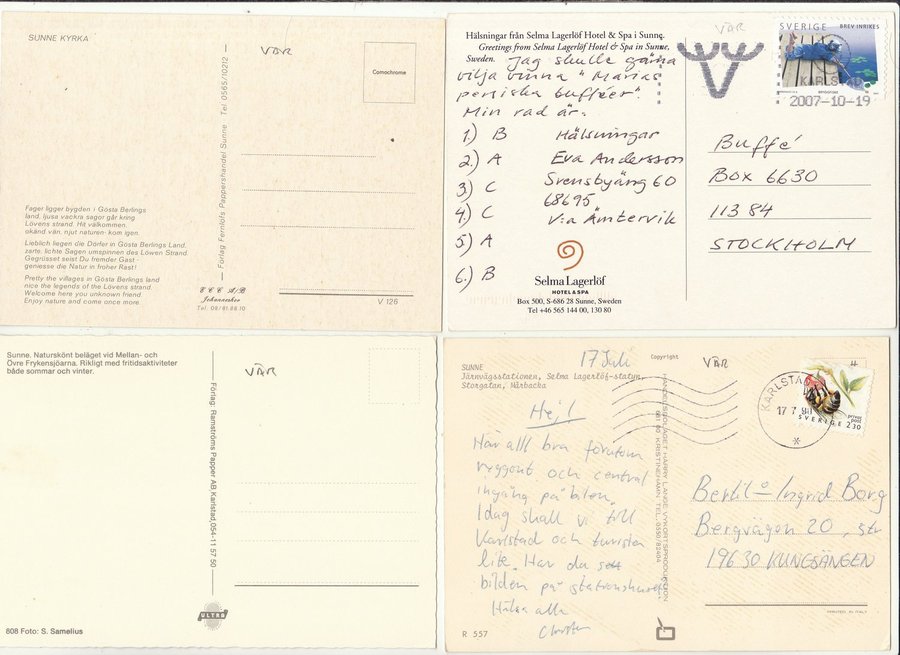 SUNNE KYRKA
VÄR
Comochrome
Förlag Fernlöfs Pappershandel Sunne Tel 0565/10212
Fager ligger bygden i Gösta Berlings
land, ljusa vackra sagor går kring
Lövens strand. Hit välkommen,
okänd vän, njut naturen kom igen.
Lieblich liegen die Dörfer in Gösta Berlings Land,
zarte, lichte Sagen umspinnen des Löwen Strand.
Gegrüsset seist Du fremder Gast -
geniesse die Natur in froher Rast!
Pretty the villages in Gösta Berlings land
nice the legends of the Lövens strand.
Welcome here you unknown friend.
Enjoy nature and come once more.
E C C A/B
Johanneshov
Tel: 08/81 88 10
V 126
Hälsningar från Selma Lagerlöf Hotel & Spa i Sunne.
Greetings from Selma Lagerlöf Hotel & Spa in Sunne,
Sweden.
VÄR
SVERIGE BREV INRIKES
KARLSTAD
2007-10-19
Jag skulle gärna
vilja vinna "Marias
persiska bufféer".
Min rad är:
1) B
2) A
3) C
4) C
5) A
6) B
Hälsningar
Eva Andersson
Svensbyäng 60
68695
V:a Ämtervik
Buffé
Box 6630
113 84
STOCKHOLM
Selma Lagerlöf
HOTEL & SPA
Box 500, S-686 28 Sunne, Sweden
Tel +46 565 144 00, 130 80
Sunne. Naturskönt beläget vid Mellan- och
Övre Frykensjöarna. Rikligt med fritidsaktiviteter
både sommar och vinter.
VÄR
Förlag: Ramströms Papper AB Karlstad, 054-11 57 50
ULTRA
808 Foto: S. Samelius
17 Juli
Copyright
VÄR
SUNNE
Järnvägsstationen, Selma Lagerlöf-statyn,
Storgatan, Mårbacka
HANDELSBOLAGET HARRY LANGE, VYKORTSPRODUKTION
681 00 KRISTINEHAMN - TEL. 0550/82404
KARLSTAD
17 7 90
privat post
SVERIGE 2.30
Hej!
Här allt bra förutom
ryggont och central
ingång på bilen.
Idag skall vi till
Karlstad och turista
lite. Har du sett
bilden på stationshuset
Hälsa alla
Bertil o Ingrid Borg
Bergvägen 20
196 30 KUNGSÄNGEN
R 557